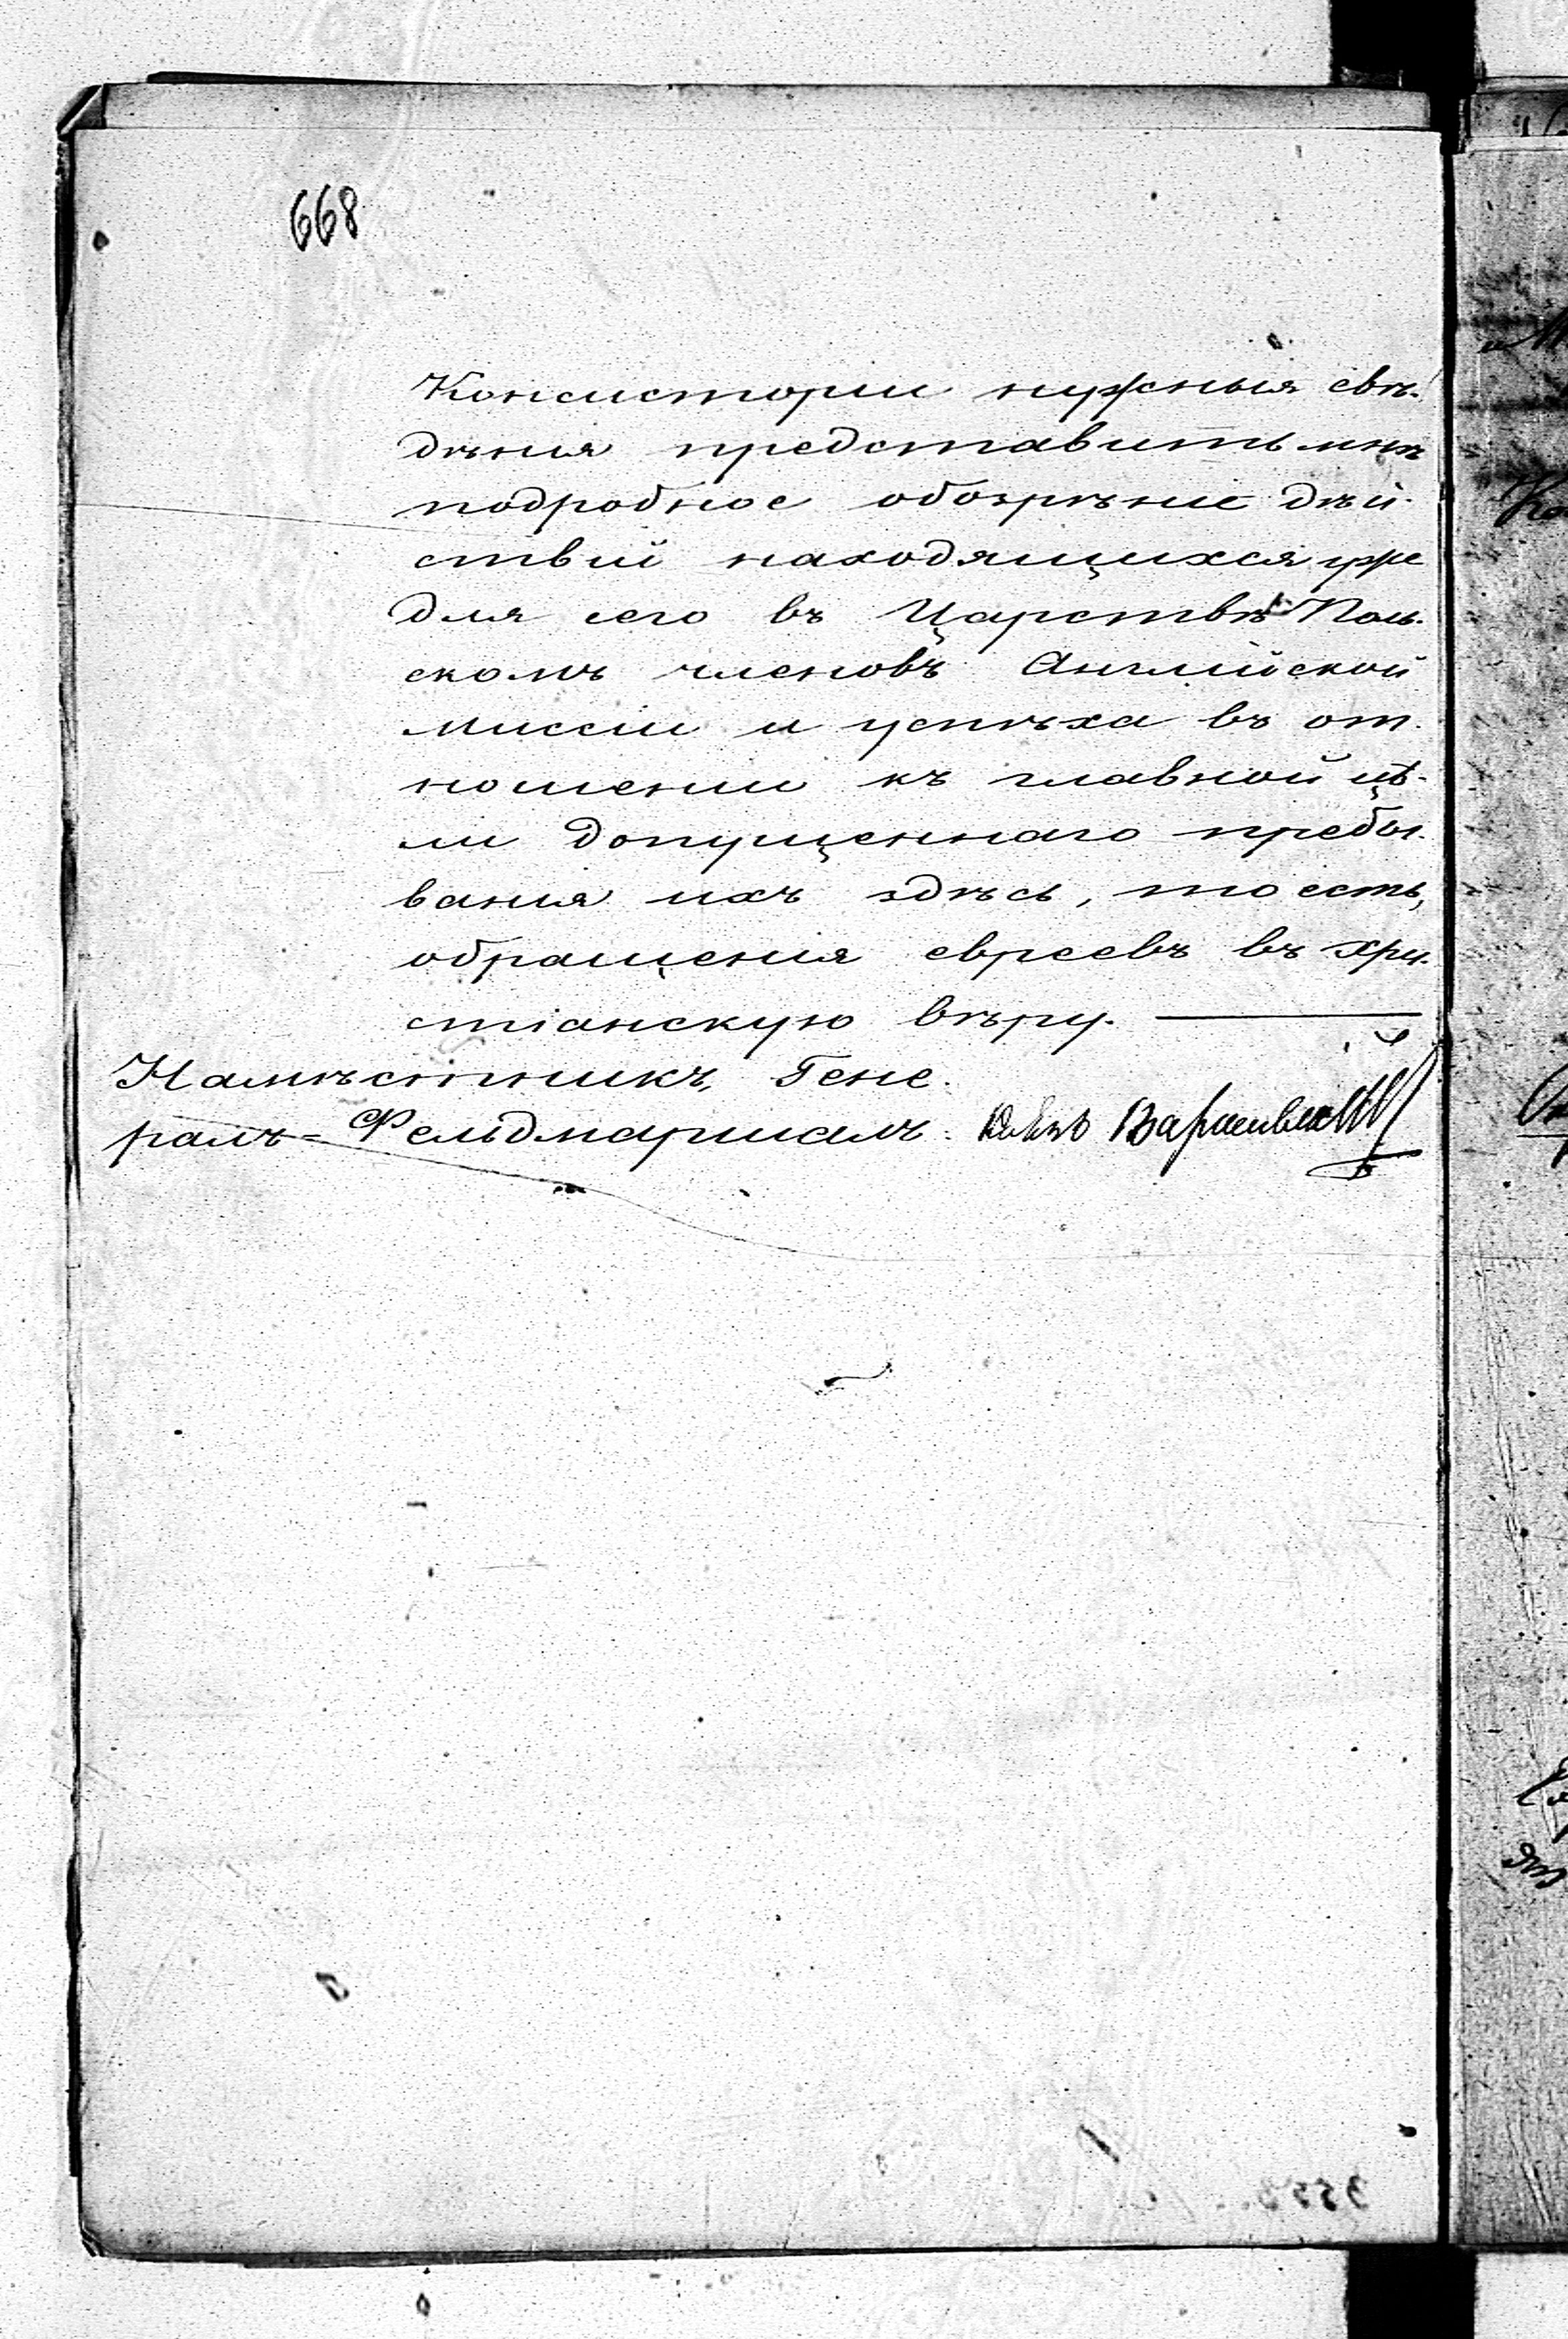 668
Консисторіи нужныя свѣ-
дѣнія представить мнѣ
подробное обозрѣніе дѣй-
ствій находящихся уже
для сего въ Царствѣ Поль-
скомъ членовъ Англійской
Миссіи и успѣха въ от-
ношеніи къ главной цѣ-
ли допущеннаго пребы-
ванія ихъ здѣсь, то есть,
обращенія евреевъ въ хри-
стіанскую вѣру.
Намѣстникъ, Гене-
ралъ-Фельдмаршалъ: Князь Варшавскій